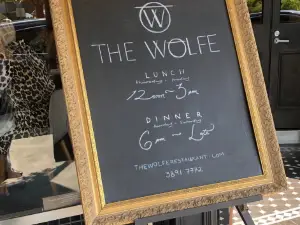 W
THE WOLFE
LUNCH
12am - 3pm
DINNER
6pm - Late
THEWOLFERESTAURANT.COM
9891 7772